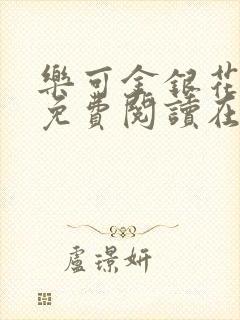 樂可金銀花
免費閱讀在
盧璟妍